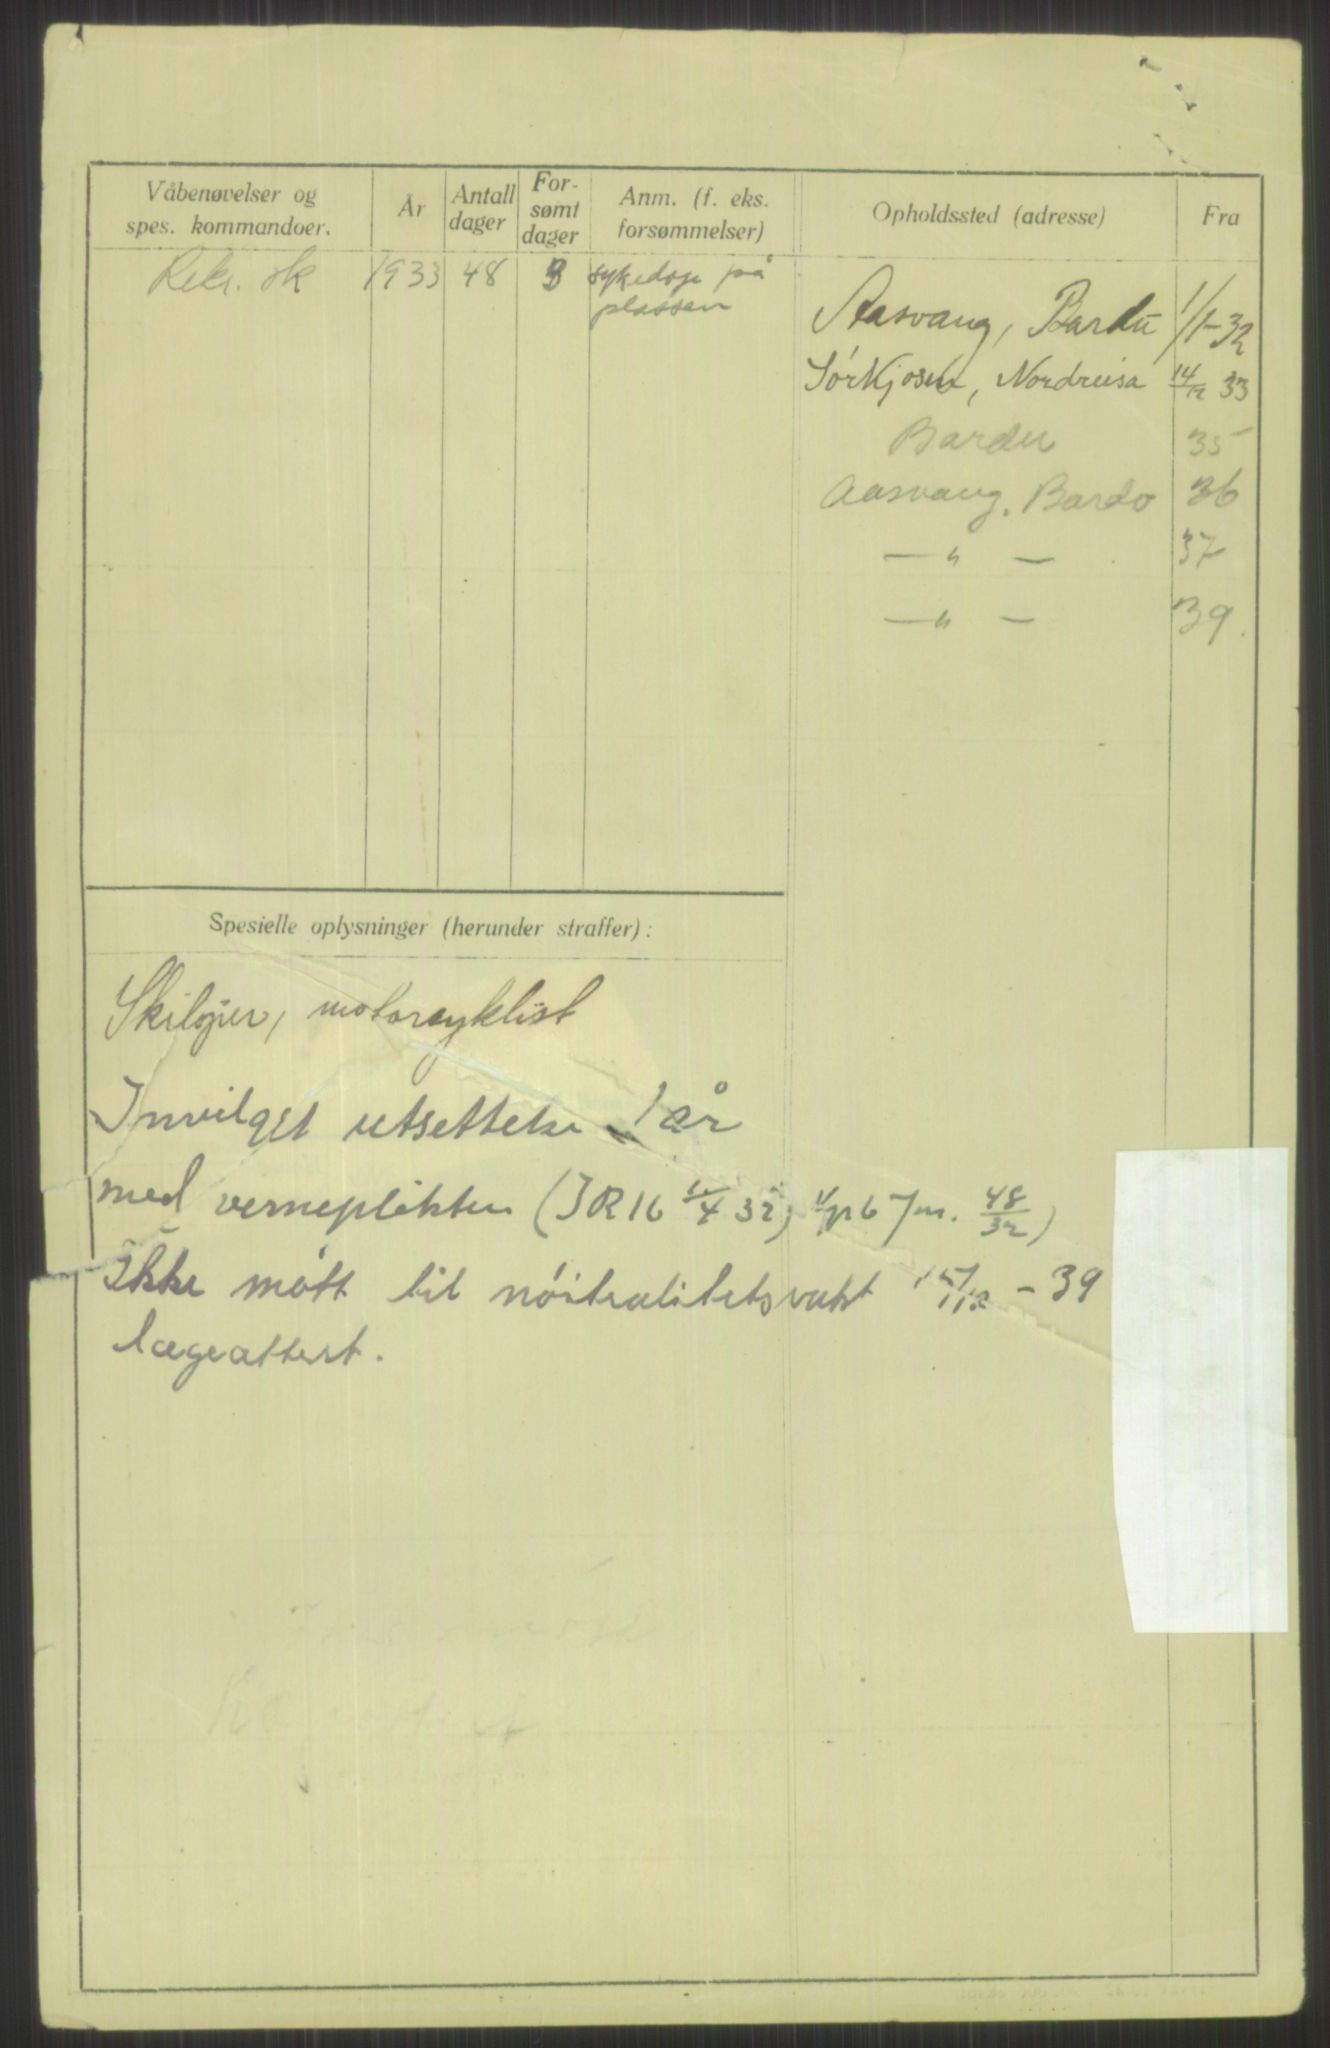 Våbenøvelser og spes. kommandoer.
År
Antall dager
For-sømt dager
Anm. (f. eks. forsømmelser)
Opholdssted (adresse)
Fra
Rekr. sk 1933 48 3 sykedage på
plassen
Aasvang, Bardu 1/1-32
Sörkjosen, Nordreisa 14/12 33
Bardu 35
Aasvang, Bardo 36
— " — 37
— " — 39.
Spesielle oplysninger (herunder straffer):
Skiløper, motorcyklist
Innvilget utsettelse 1 år
med verneplikten (IR16 4 32, 48/32)
Ikke møtt til nöitralitetsvakt - 39
lægeattest.